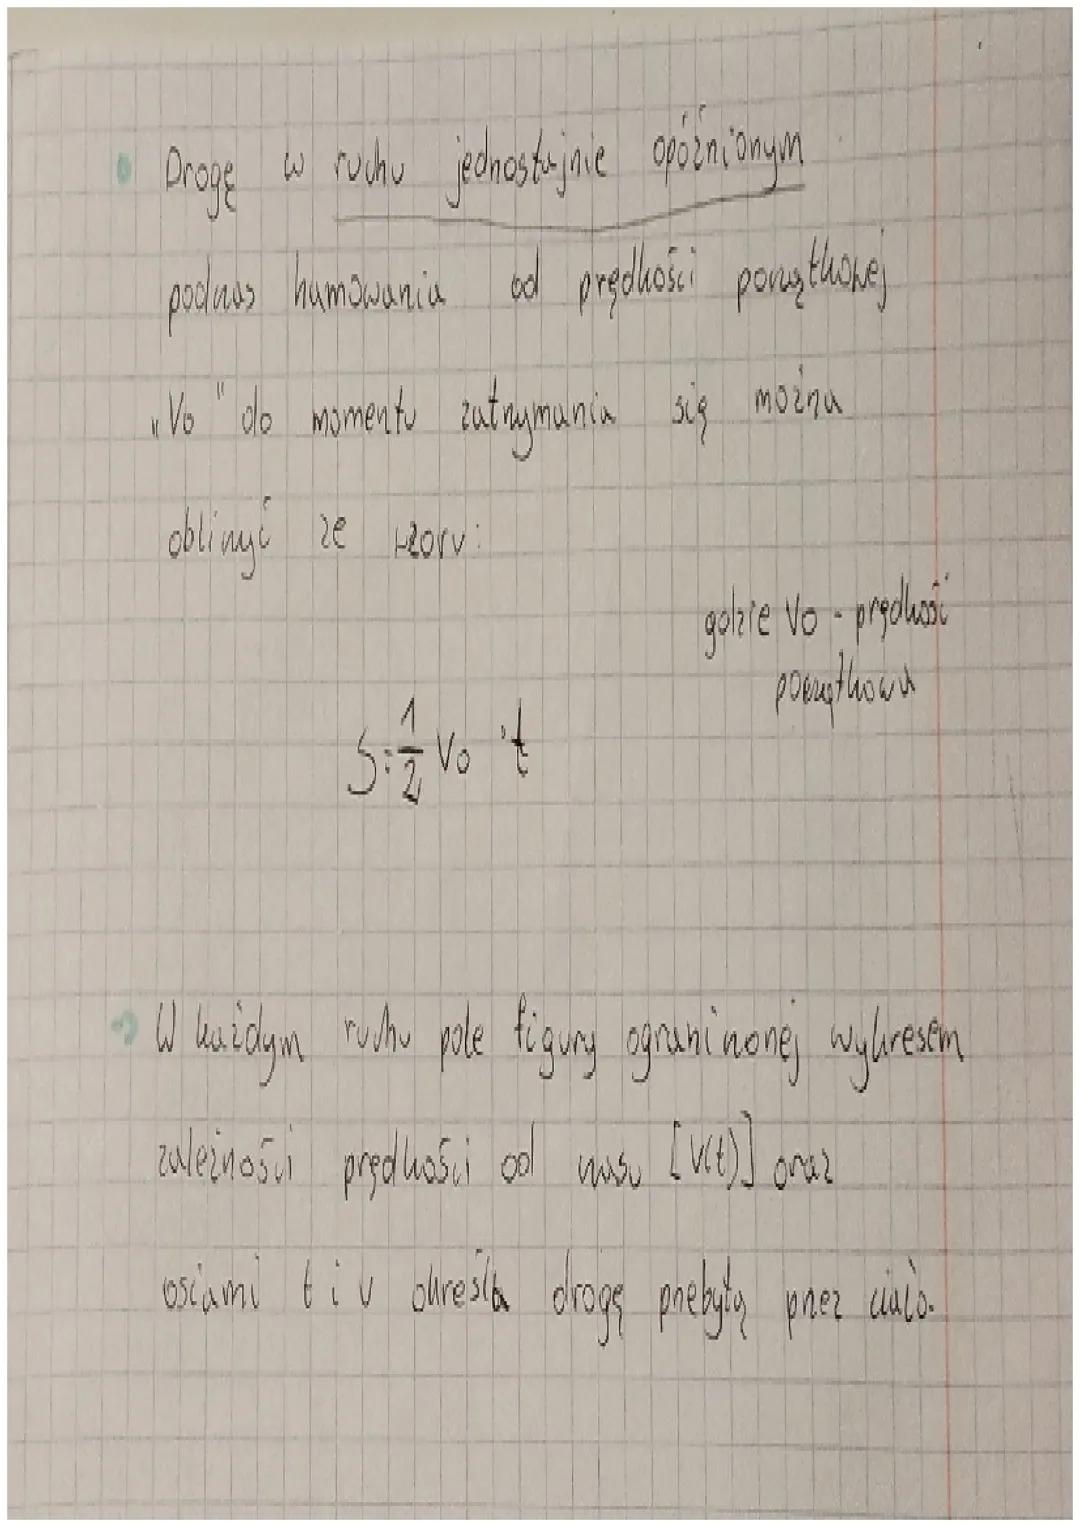 Drogę w ruchu jednostajnie opóźnionym
podczas hamowania od prędkości początkowej
„Vo" do momentu zatrzymania się można
obliczyć ze wzoru:
gdzie Vo - prędkość
początkowa
S = 1/2 Vo · t
W każdym ruchu pole figury ograniczonej wykresem
zależności prędkości od czasu [V(t)] oraz
osiami t i v określa drogę przebytą przez ciało.